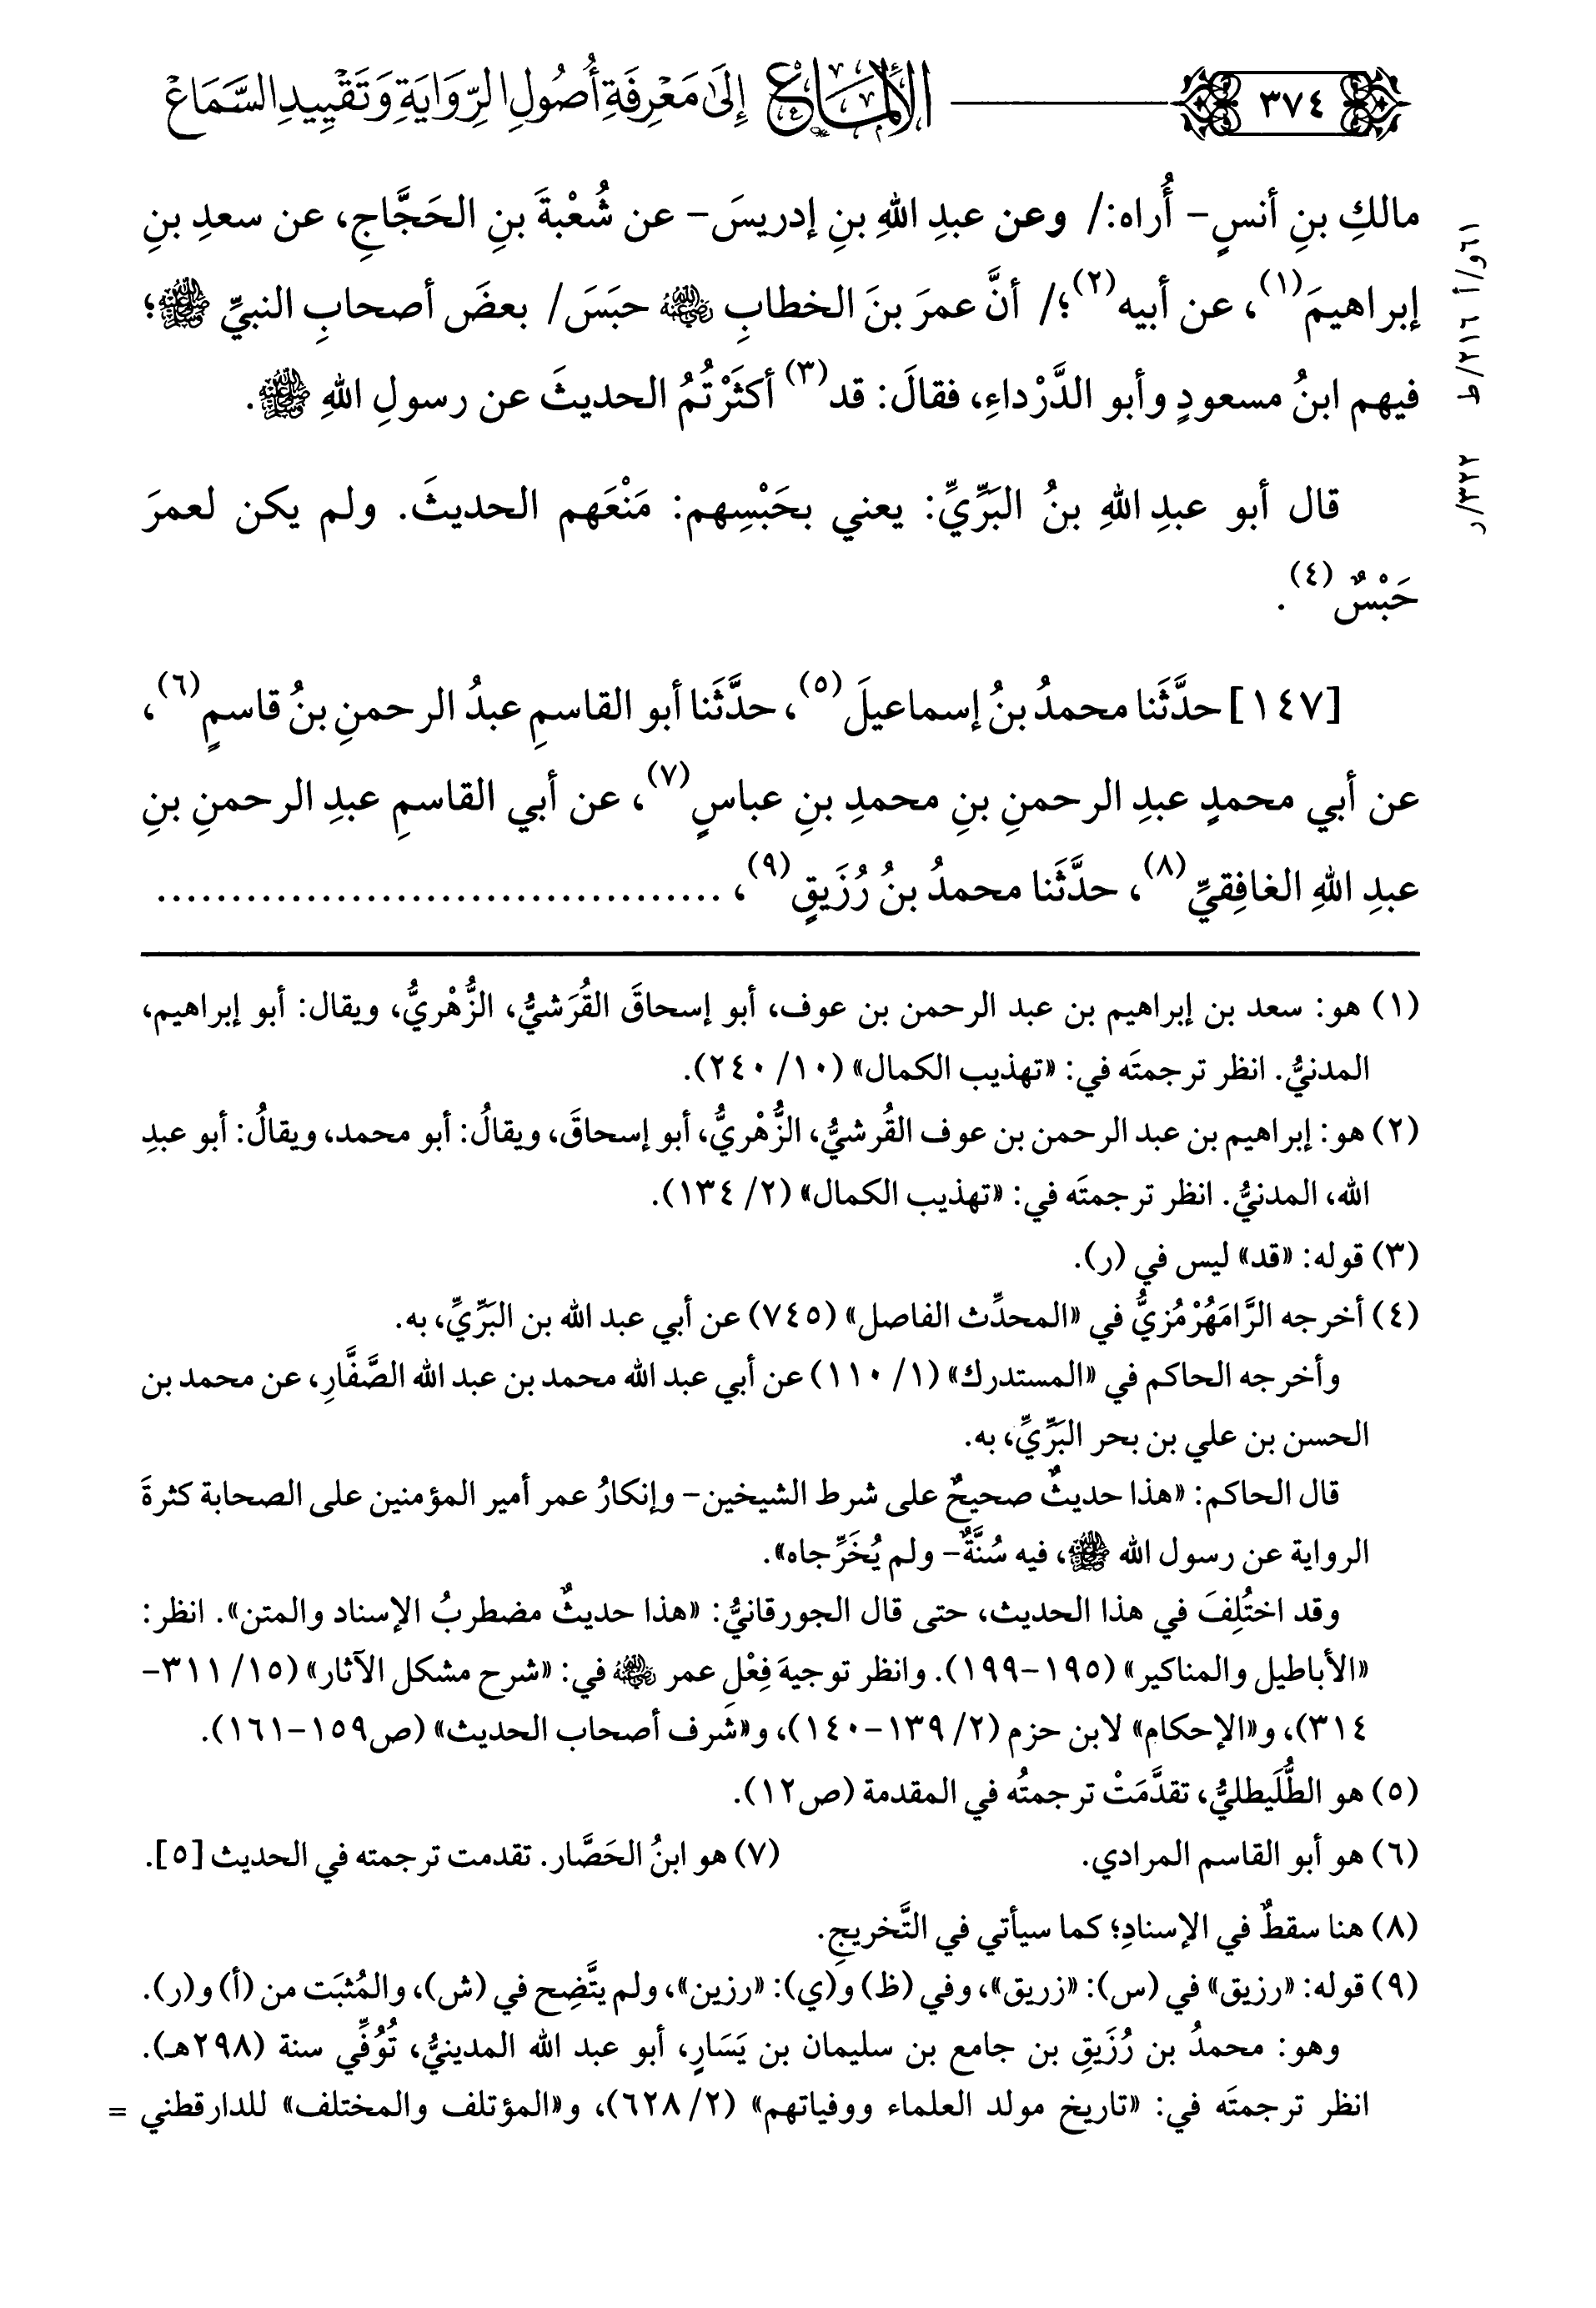 ٣٧٤ الإلماع إِلَىٰ مَعْرِفَةِ أُصُولِ الرِّوَايَةِ وَتَقْيِيدِ السَّمَاعْ
مالكِ بنِ أنسٍ- أُراه:/ وعن عبدِ اللهِ بنِ إدريسَ- عن شُعْبةَ بنِ الحَجَّاجِ، عن سعدِ بنِ
إبراهيمَ(١)، عن أبيه(٢)؛/ أنَّ عمرَ بنَ الخطابِ رضي الله عنه حبَسَ/ بعضَ أصحابِ النبيِّ ﷺ؛
فيهم ابنُ مسعودٍ وأبو الدَّرْداءِ، فقالَ: قد(٣) أكثَرْتُمُ الحديثَ عن رسولِ اللهِ ﷺ.
قال أبو عبدِ اللهِ بنُ البَرِّيِّ: يعني بحَبْسِهم: مَنْعَهم الحديثَ. ولم يكن لعمرَ
حَبْسٌ(٤).
[١٤٧] حدَّثَنا محمدُ بنُ إسماعيلَ(٥)، حدَّثَنا أبو القاسمِ عبدُ الرحمنِ بنُ قاسمٍ(٦)،
عن أبي محمدٍ عبدِ الرحمنِ بنِ محمدِ بنِ عباسٍ(٧)، عن أبي القاسمِ عبدِ الرحمنِ بنِ
عبدِ اللهِ الغافِقيِّ(٨)، حدَّثَنا محمدُ بنُ رُزَيقٍ(٩)، .......................................
٦١و/أ ٢١٦/ظ ٣٢٢/ر
(١) هو: سعد بن إبراهيم بن عبد الرحمن بن عوف، أبو إسحاقَ القُرَشيُّ، الزُّهْريُّ، ويقال: أبو إبراهيم،
المدنيُّ. انظر ترجمتَه في: «تهذيب الكمال» (١٠/ ٢٤٠).
(٢) هو: إبراهيم بن عبد الرحمن بن عوف القُرشيُّ، الزُّهْريُّ، أبو إسحاقَ، ويقالُ: أبو محمد، ويقالُ: أبو عبدِ
الله، المدنيُّ. انظر ترجمتَه في: «تهذيب الكمال» (٢/ ١٣٤).
(٣) قوله: «قد» ليس في (ر).
(٤) أخرجه الرَّامَهُرْمُزيُّ في «المحدِّث الفاصل» (٧٤٥) عن أبي عبد الله بن البَرِّيِّ، به.
وأخرجه الحاكم في «المستدرك» (١/ ١١٠) عن أبي عبد الله محمد بن عبد الله الصَّفَّارِ، عن محمد بن
الحسن بن علي بن بحر البَرِّيِّ، به.
قال الحاكم: «هذا حديثٌ صحيحٌ على شرط الشيخين- وإنكارُ عمر أمير المؤمنين على الصحابة كثرةَ
الرواية عن رسول الله ﷺ، فيه سُنَّةٌ- ولم يُخَرِّجاه».
وقد اختُلِفَ في هذا الحديث، حتى قال الجورقانيُّ: «هذا حديثٌ مضطربُ الإسناد والمتن». انظر:
«الأباطيل والمناكير» (١٩٥-١٩٩). وانظر توجيهَ فِعْلِ عمر رضي الله عنه في: «شرح مشكل الآثار» (١٥/ ٣١١-
٣١٤)، و«الإحكام» لابن حزم (٢/ ١٣٩-١٤٠)، و«شَرف أصحاب الحديث» (ص١٥٩-١٦١).
(٥) هو الطُّلَيطليُّ، تقدَّمَتْ ترجمتُه في المقدمة (ص١٢).
(٦) هو أبو القاسم المرادي. (٧) هو ابنُ الحَصَّار. تقدمت ترجمته في الحديث [٥].
(٨) هنا سقطٌ في الإسنادِ؛ كما سيأتي في التَّخريجِ.
(٩) قوله: «رزيق» في (س): «زريق»، وفي (ظ) و(ي): «رزين»، ولم يتَّضِح في (ش)، والمُثبَت من (أ) و(ر).
وهو: محمدُ بن رُزَيقِ بن جامع بن سليمان بن يَسَارٍ، أبو عبد الله المدينيُّ، تُوُفِّي سنة (٢٩٨هـ).
انظر ترجمتَه في: «تاريخ مولد العلماء ووفياتهم» (٢/ ٦٢٨)، و«المؤتلف والمختلف» للدارقطني =